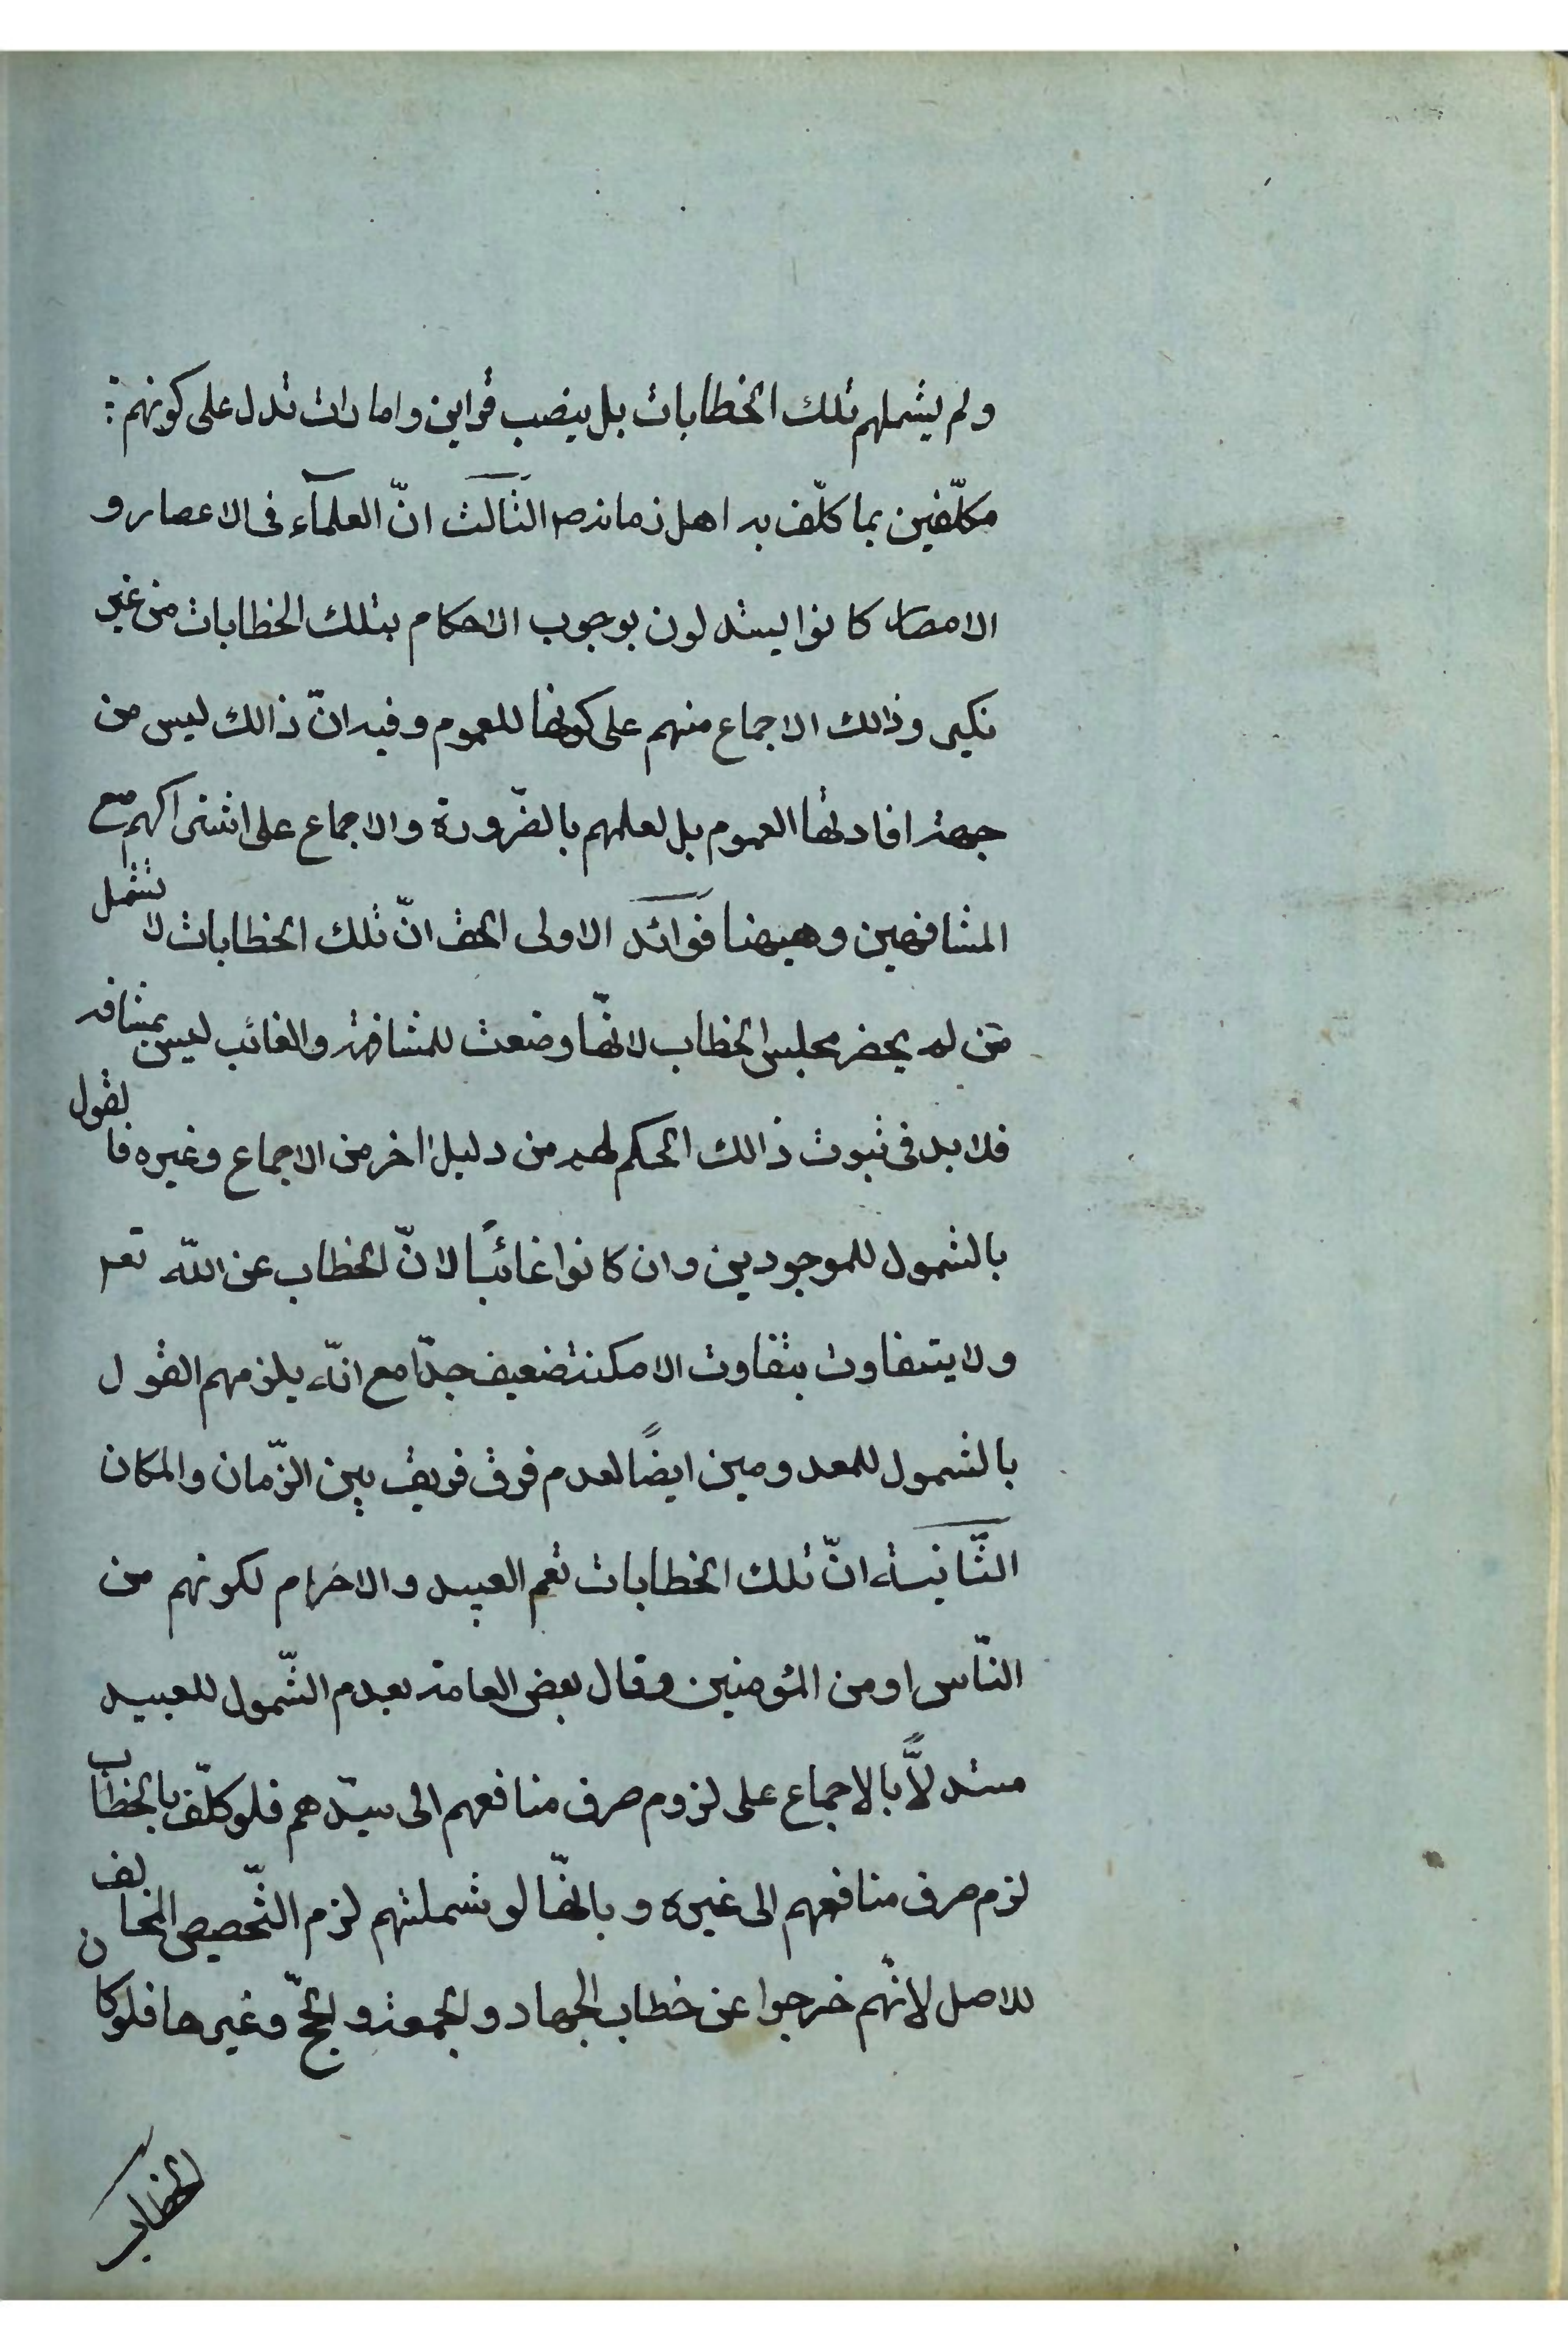 ولم يشملهم تلك الخطابات بل ينصب قراين وامارات تدل على كونهم
مكلّفين بما كلّف به اهل زمانه ص الثالث انّ العلمآء فى الاعصار و
الامصار كانوا يستدلون بوجوب الاحكام بتلك الخطابات من غير
نكير وذالك الاجماع منهم على كونها للعموم وفيه انّ ذالك ليس من
جهة افادتها العموم بل لعلمهم بالضّرورة والاجماع على اشتراكهم مع
المشافهين وهيهنا فوائد الاولى الحق انّ تلك الخطابات لا تشمل
من لم يحضر مجلس الخطاب لانّها وضعت للمشافهة والغائب ليس بمشافه
فلا بد فى ثبوت ذالك الحكم لهم من دليل اخر من الاجماع وغيره فالقول
بالشمول للموجودين وان كانوا غائبًا لانّ الخطاب عن اللّه تعم
ولا يتفاوت بتفاوت الامكنة ضعيف جدّا مع انّه يلزمهم القول
بالشمول للمعدومين ايضًا لعدم فرق فريق بين الزّمان والمكان
الثّانية انّ تلك الخطابات تعم العبيد والاحرام لكونهم من
النّاس او من المؤمنين وقال بعض العامة بعدم الشّمول للعبيد
مستدلًّا بالاجماع على لزوم صرف منافعهم الى سيّدهم فلو كلّف بالخطاب
لزم صرف منافعهم الى غيره و بانّها لو شملتهم لزم التّخصيص المخالف
للاصل لانّهم خرجوا عن خطاب الجهاد والجمعة والحجّ وغيرها فلو كان
الخطاب